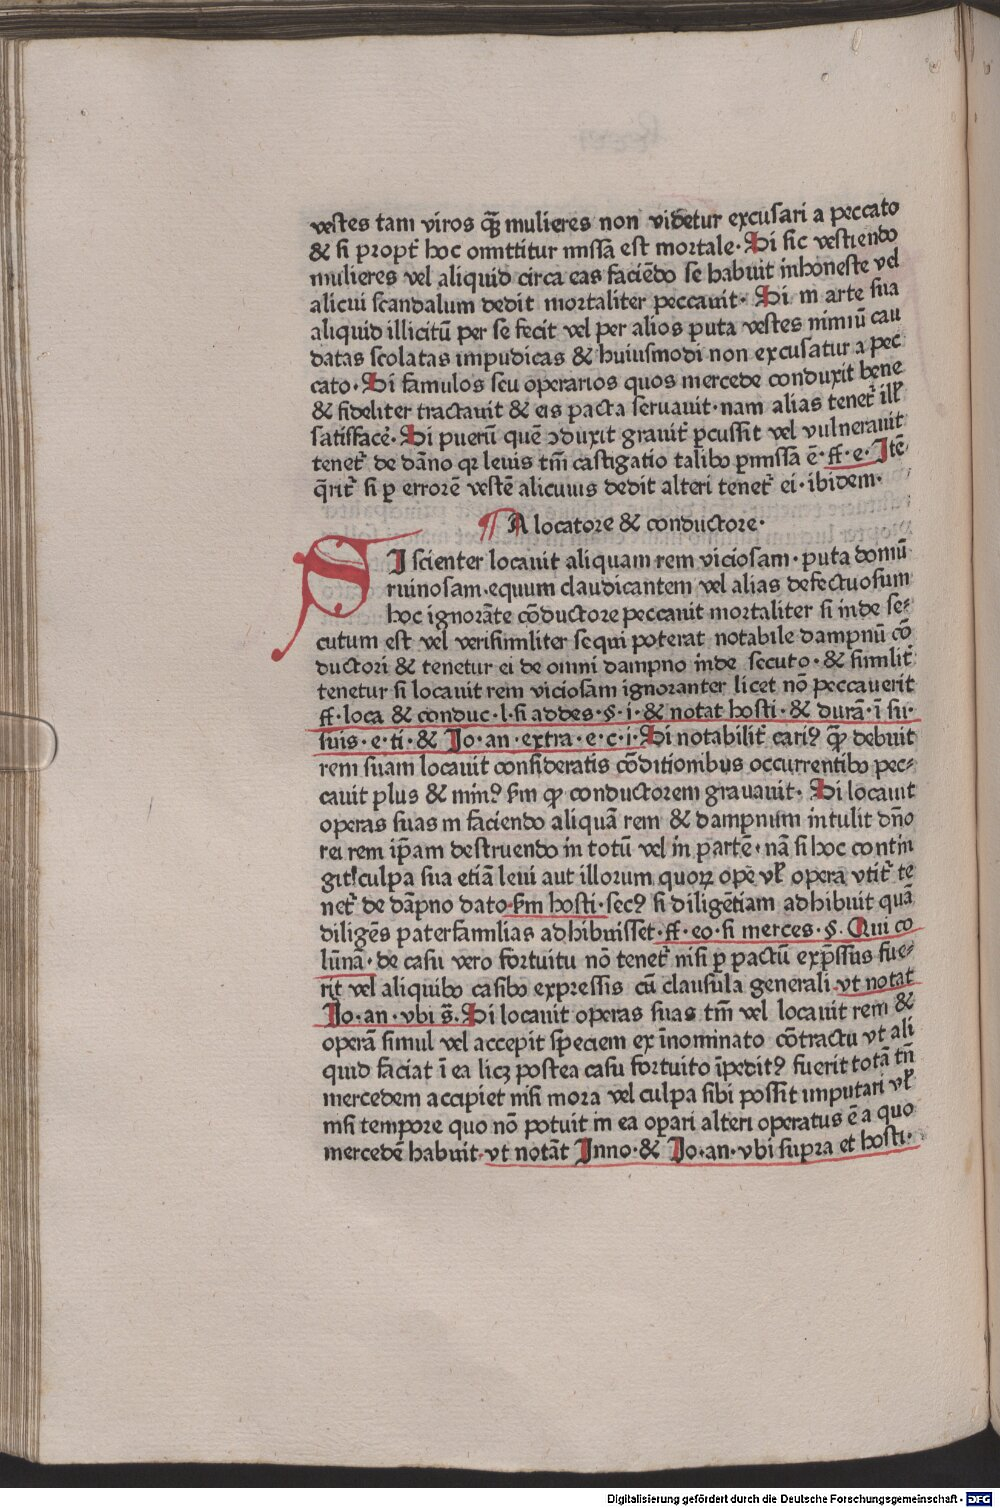 vestes tam viros q̄ʒ mulieres non videtur excusari a peccato
& si propt̄ hoc omittitur missa est mortale. Si sic vestiendo
mulieres vel aliquid circa eas faciēdo se habuit inhoneste vel
alicui scandalum dedit mortaliter peccauit. Si in arte sua
aliquid illicitū per se fecit vel per alios puta vestes nimiū cau
datas scolatas impudicas & huiusmodi non excusatur a pec
cato. Si famulos seu operarios quos mercede conduxit bene
& fideliter tractauit & eis pacta seruauit. nam alias tenet̄ ill̄
satisfacē. Si puerū quē ↄduxit grauit̄ ꝑcussit vel vulnerauit
tenet̄ de dāno qꝛ leuis tm̄ castigatio talibꝰ ꝑmissa ē. ff. e. Itē
q̄rit̄ si ꝑ errorē vestē alicuius dedit alteri tenet̄ ei. ibidem.
¶ A locatore & conductore.
SI scienter locauit aliquam rem viciosam. puta domū
ruinosam. equum claudicantem vel alias defectuosum
hoc ignorāte cōductore peccauit mortaliter si inde se-
cutum est vel verisimiliter sequi poterat notabile dampnū cō
ductori & tenetur ei de omni dampno inde secuto. & similit̄
tenetur si locauit rem viciosam ignoranter licet nō peccauerit
ff. loca & conduc. l. si addes. §. i. & notat hosti. & durā. ī su.
suis. e. ti. & Jo. an. extra. e. c. i. Si notabilit̄ cariꝰ qꝫ debuit
rem suam locauit consideratis cōditionibus occurrentibꝰ pec-
cauit plus & minꝰ sm̄ qꝫ conductorem grauauit. Si locauit
operas suas in faciendo aliquā rem & dampnum intulit dn̄o
rei rem ip̄am destruendo in totū vel in partē. nā si hoc contin
git! culpa sua etiā leui aut illorum quoꝝ ope vl̄ opera vtit̄ te
net̄ de dāpno dato. sm̄ hosti. secꝰ si diligētiam adhibuit quā
diligēs paterfamilias adhibuisset. ff. eo. si merces. §. Qui co
lūnā. de casu vero fortuitu nō tenet̄ nisi ꝑ pactū exp̄ssus fue-
rit vel aliquibꝰ casibꝰ expressis cū clausula generali. vt notat
Jo. an. vbi s̄. Si locauit operas suas tm̄ vel locauit rem &
operā simul vel accepit speciem ex īnominato cōtractu vt ali
quid faciat ī ea licꝫ postea casu fortuito īpeditꝰ fuerit totā tn̄
mercedem accipiet nisi mora vel culpa sibi possit imputari vl̄
nisi tempore quo nō potuit in ea oꝑari alteri operatus ē a quo
mercedē habuit. vt notāt Inno. & Jo. an. vbi supra et hosti.
Digitalisierung gefördert durch die Deutsche Forschungsgemeinschaft - DFG